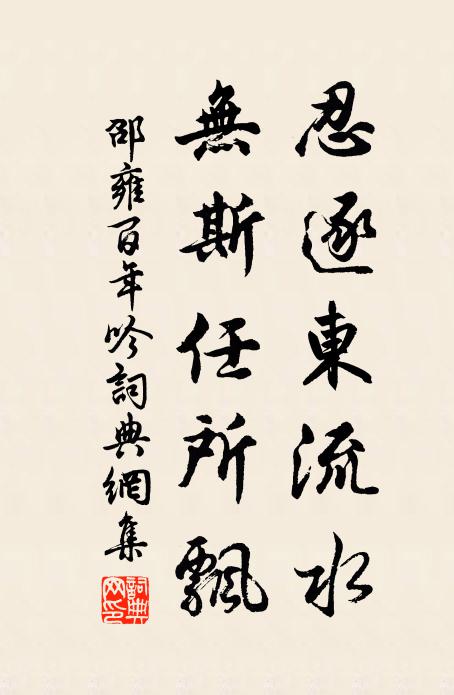 忍逐東流水
無斯任所飄
邵雍百年吟詞典網集
詞典網印